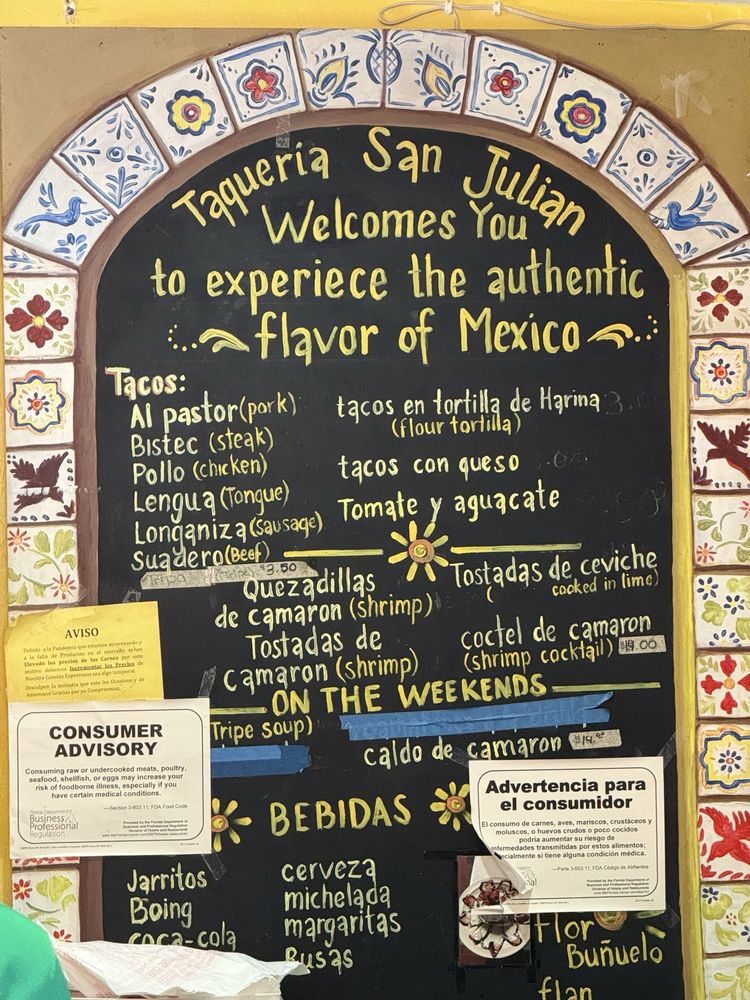 Taqueria San Julian
Welcomes You
to experiece the authentic
flavor of Mexico
Tacos:
Al pastor (pork)
Bistec (steak)
Pollo (chicken)
Lengua (Tongue)
Longaniza (Sausage)
Suadero (Beef)
$3.50
tacos en tortilla de Harina
(flour tortilla)
tacos con queso
Tomate y aguacate
Quezadillas
de camaron (shrimp)
Tostadas de
camaron (shrimp)
Tostadas de ceviche
( cooked in lime)
coctel de camaron
(shrimp cocktail) $19.00
ON THE WEEKENDS
Tripe soup)
caldo de camaron
BEBIDAS
Jarritos
Boing
coca-cola
cerveza
michelada
margaritas
Busas
flor
Buñuelo
flan
AVISO
Debido a la Pandemia que estamos atravesando y
a la falta de Productos en el mercado se han
Elevado los precios de las Carnes por este
motivo debemos Incrementar los Precios de
Nuestra Comida Esperemos sea algo temporal.
Disculpen la molestia que esto les Ocasione y de
Antemano Gracias por su Comprensión.
CONSUMER
ADVISORY
Consuming raw or undercooked meats, poultry,
seafood, shellfish, or eggs may increase your
risk of foodborne illness, especially if you
have certain medical conditions.
—Section 3-603.11, FDA Food Code
Florida Department of
Business &
Professional
Regulation
Provided by the Florida Department of
Business and Professional Regulation
Division of Hotels and Restaurants
Advertencia para
el consumidor
El consumo de carnes, aves, mariscos, crustáceos y
moluscos, o huevos crudos o poco cocidos
podría aumentar su riesgo de
enfermedades transmitidas por estos alimentos;
especialmente si tiene alguna condición médica.
—Parte 3-603.11, FDA Código de Alimentos
Provided by the Florida Department of
Business and Professional Regulation
Division of Hotels and Restaurants